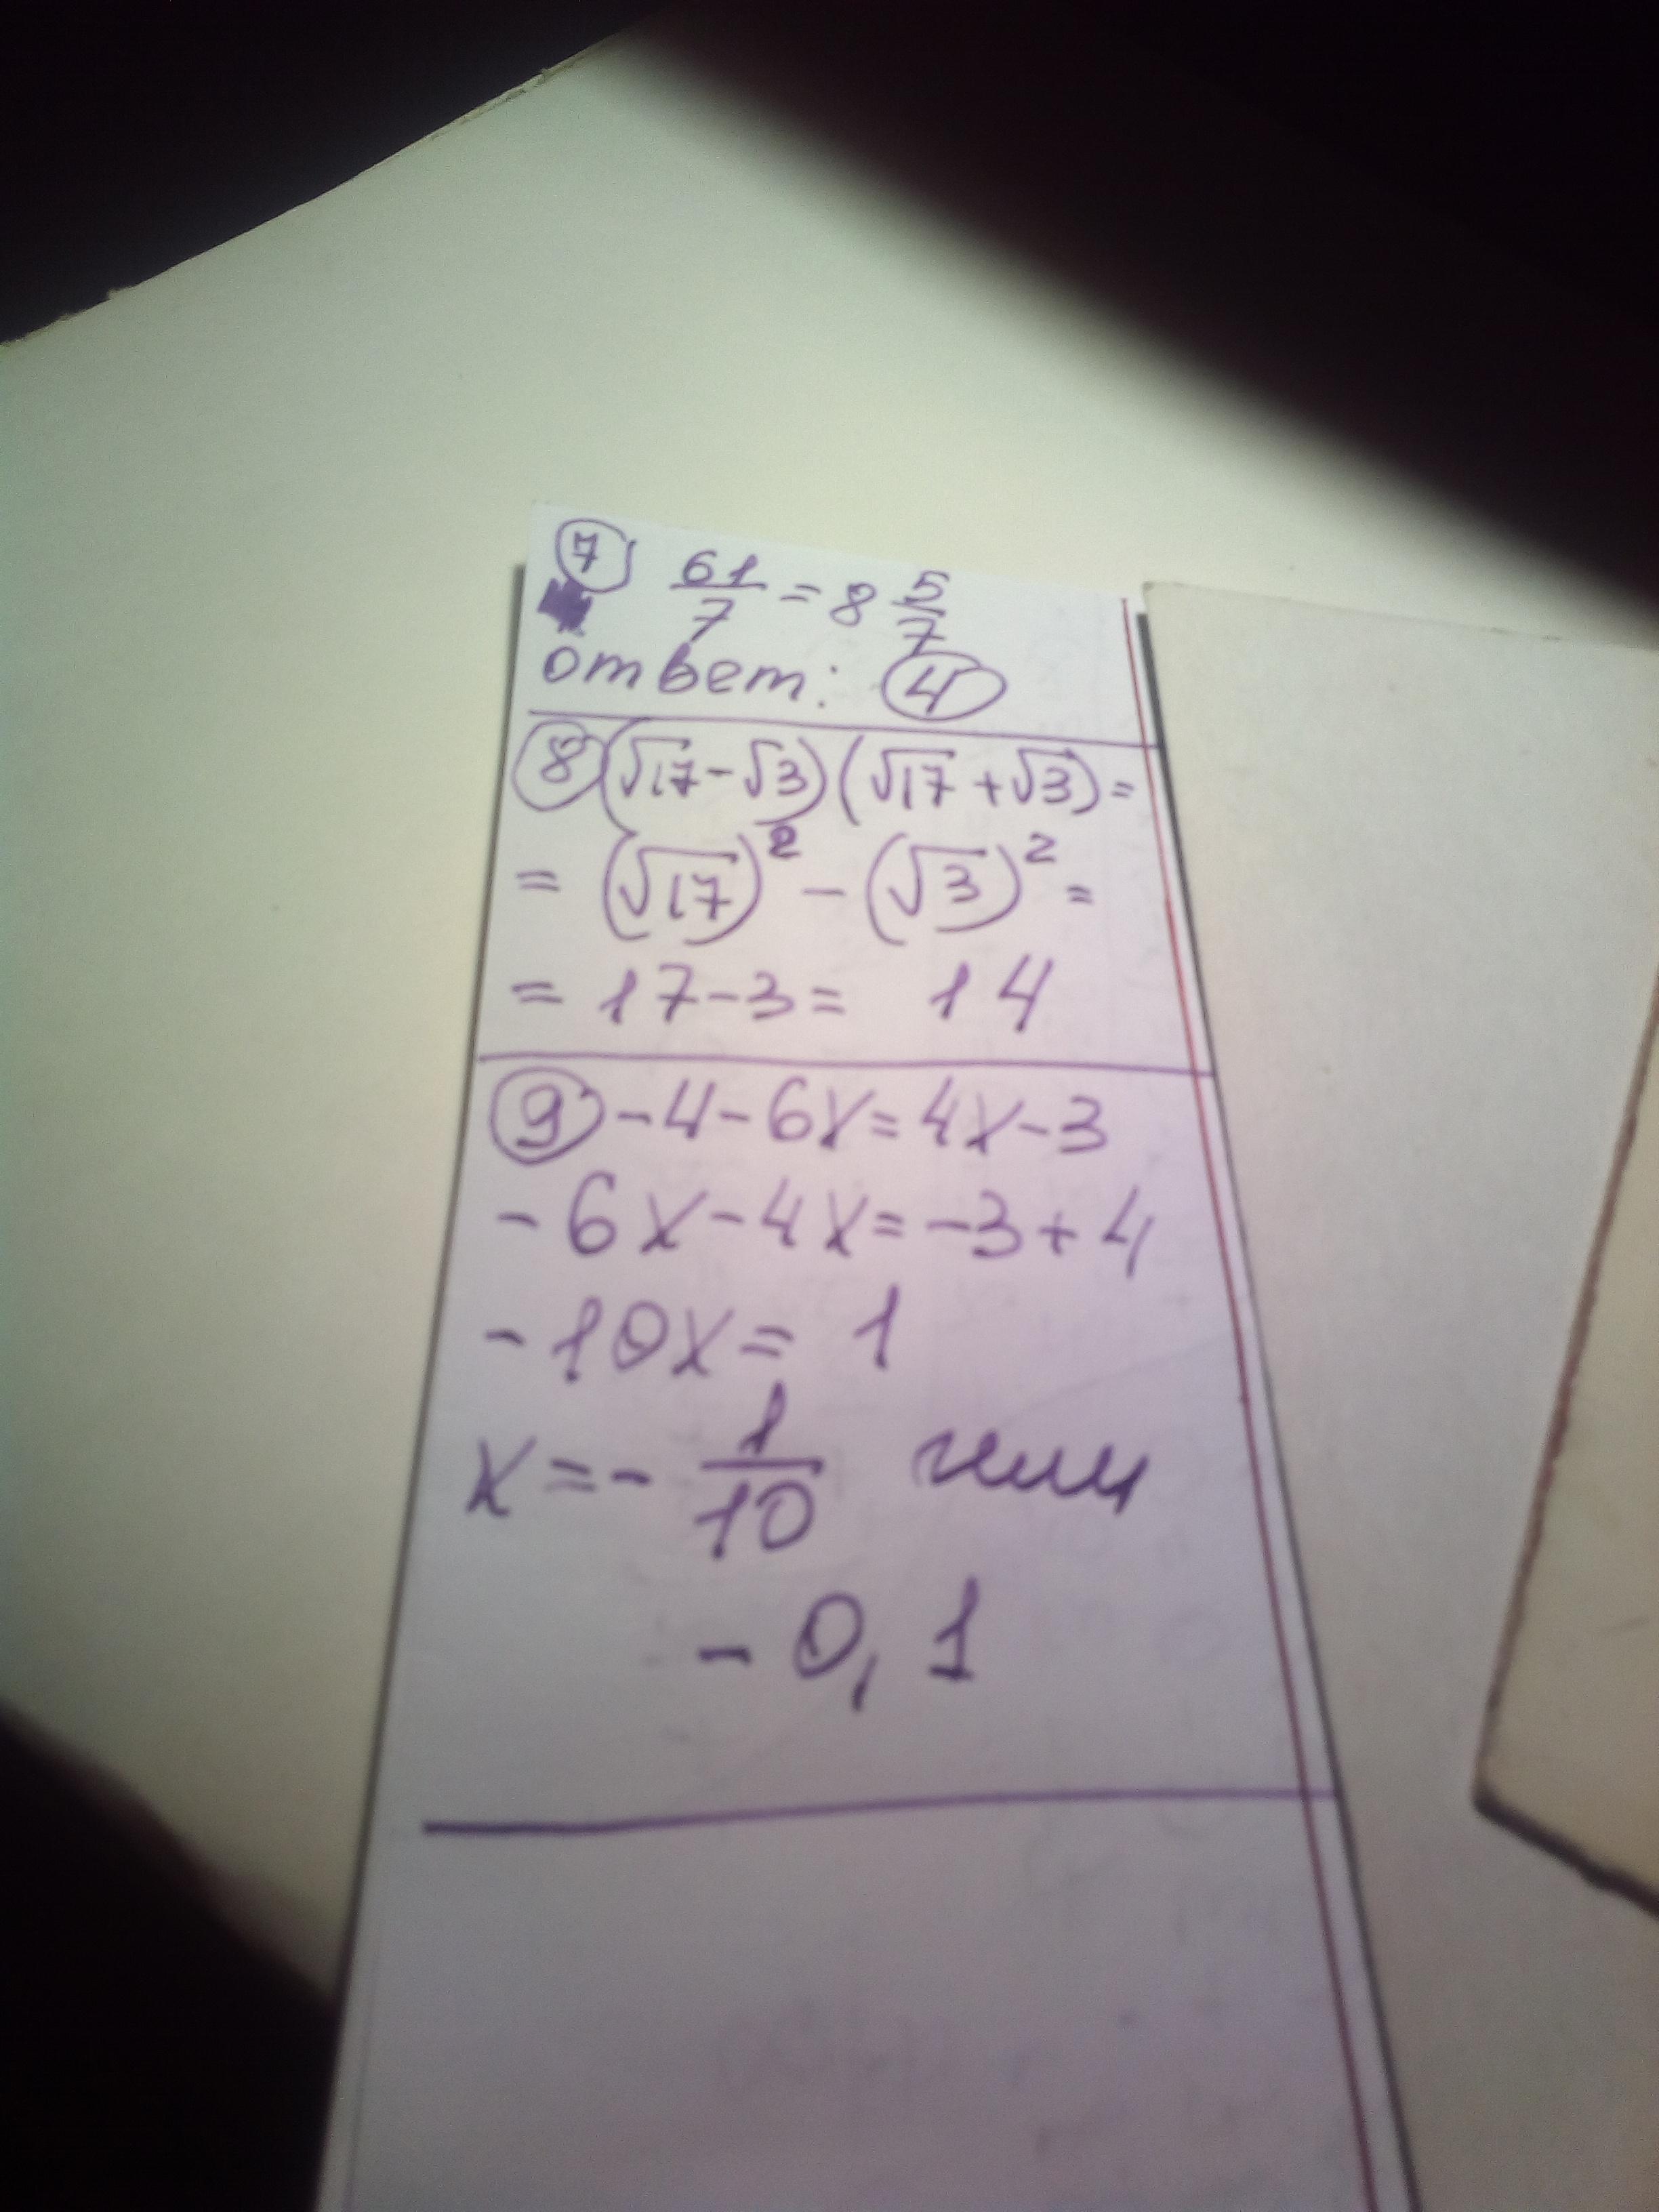 7) 61/7 = 8 5/7
ответ: 4
8 (√17-√3)(√17+√3)=
= (√17)² - (√3)² =
= 17-3= 14
9) -4-6x=4x-3
-6x-4x=-3+4
-10x= 1
x=- 1/10 или
-0,1